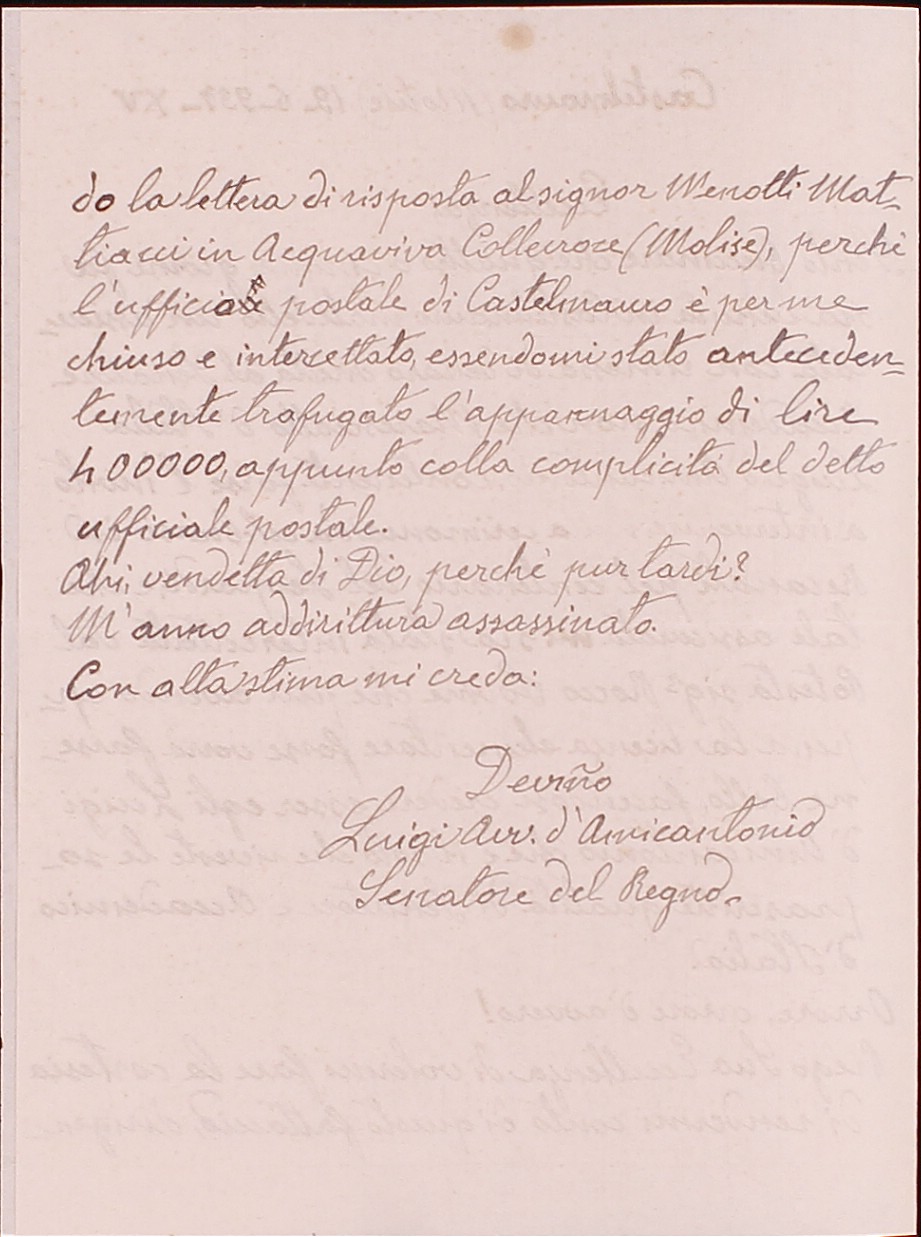 do la lettera di risposta al signor Menotti Mat-
tiacci in Acquaviva Collecroce (Molise), perchè
l'ufficiale postale di Castelmauro è per me
chiuso e intercettato, essendomi stato anteceden=
temente trafugato l'appannaggio di lire
400000, appunto colla complicità del detto
ufficiale postale.
Ahi, vendetta di Dio, perchè pur tardi?
M'anno addirittura assassinato.
Con alta stima mi creda:
Devm̃o
Luigi Avv. d'Amicantonio
Senatore del Regno.